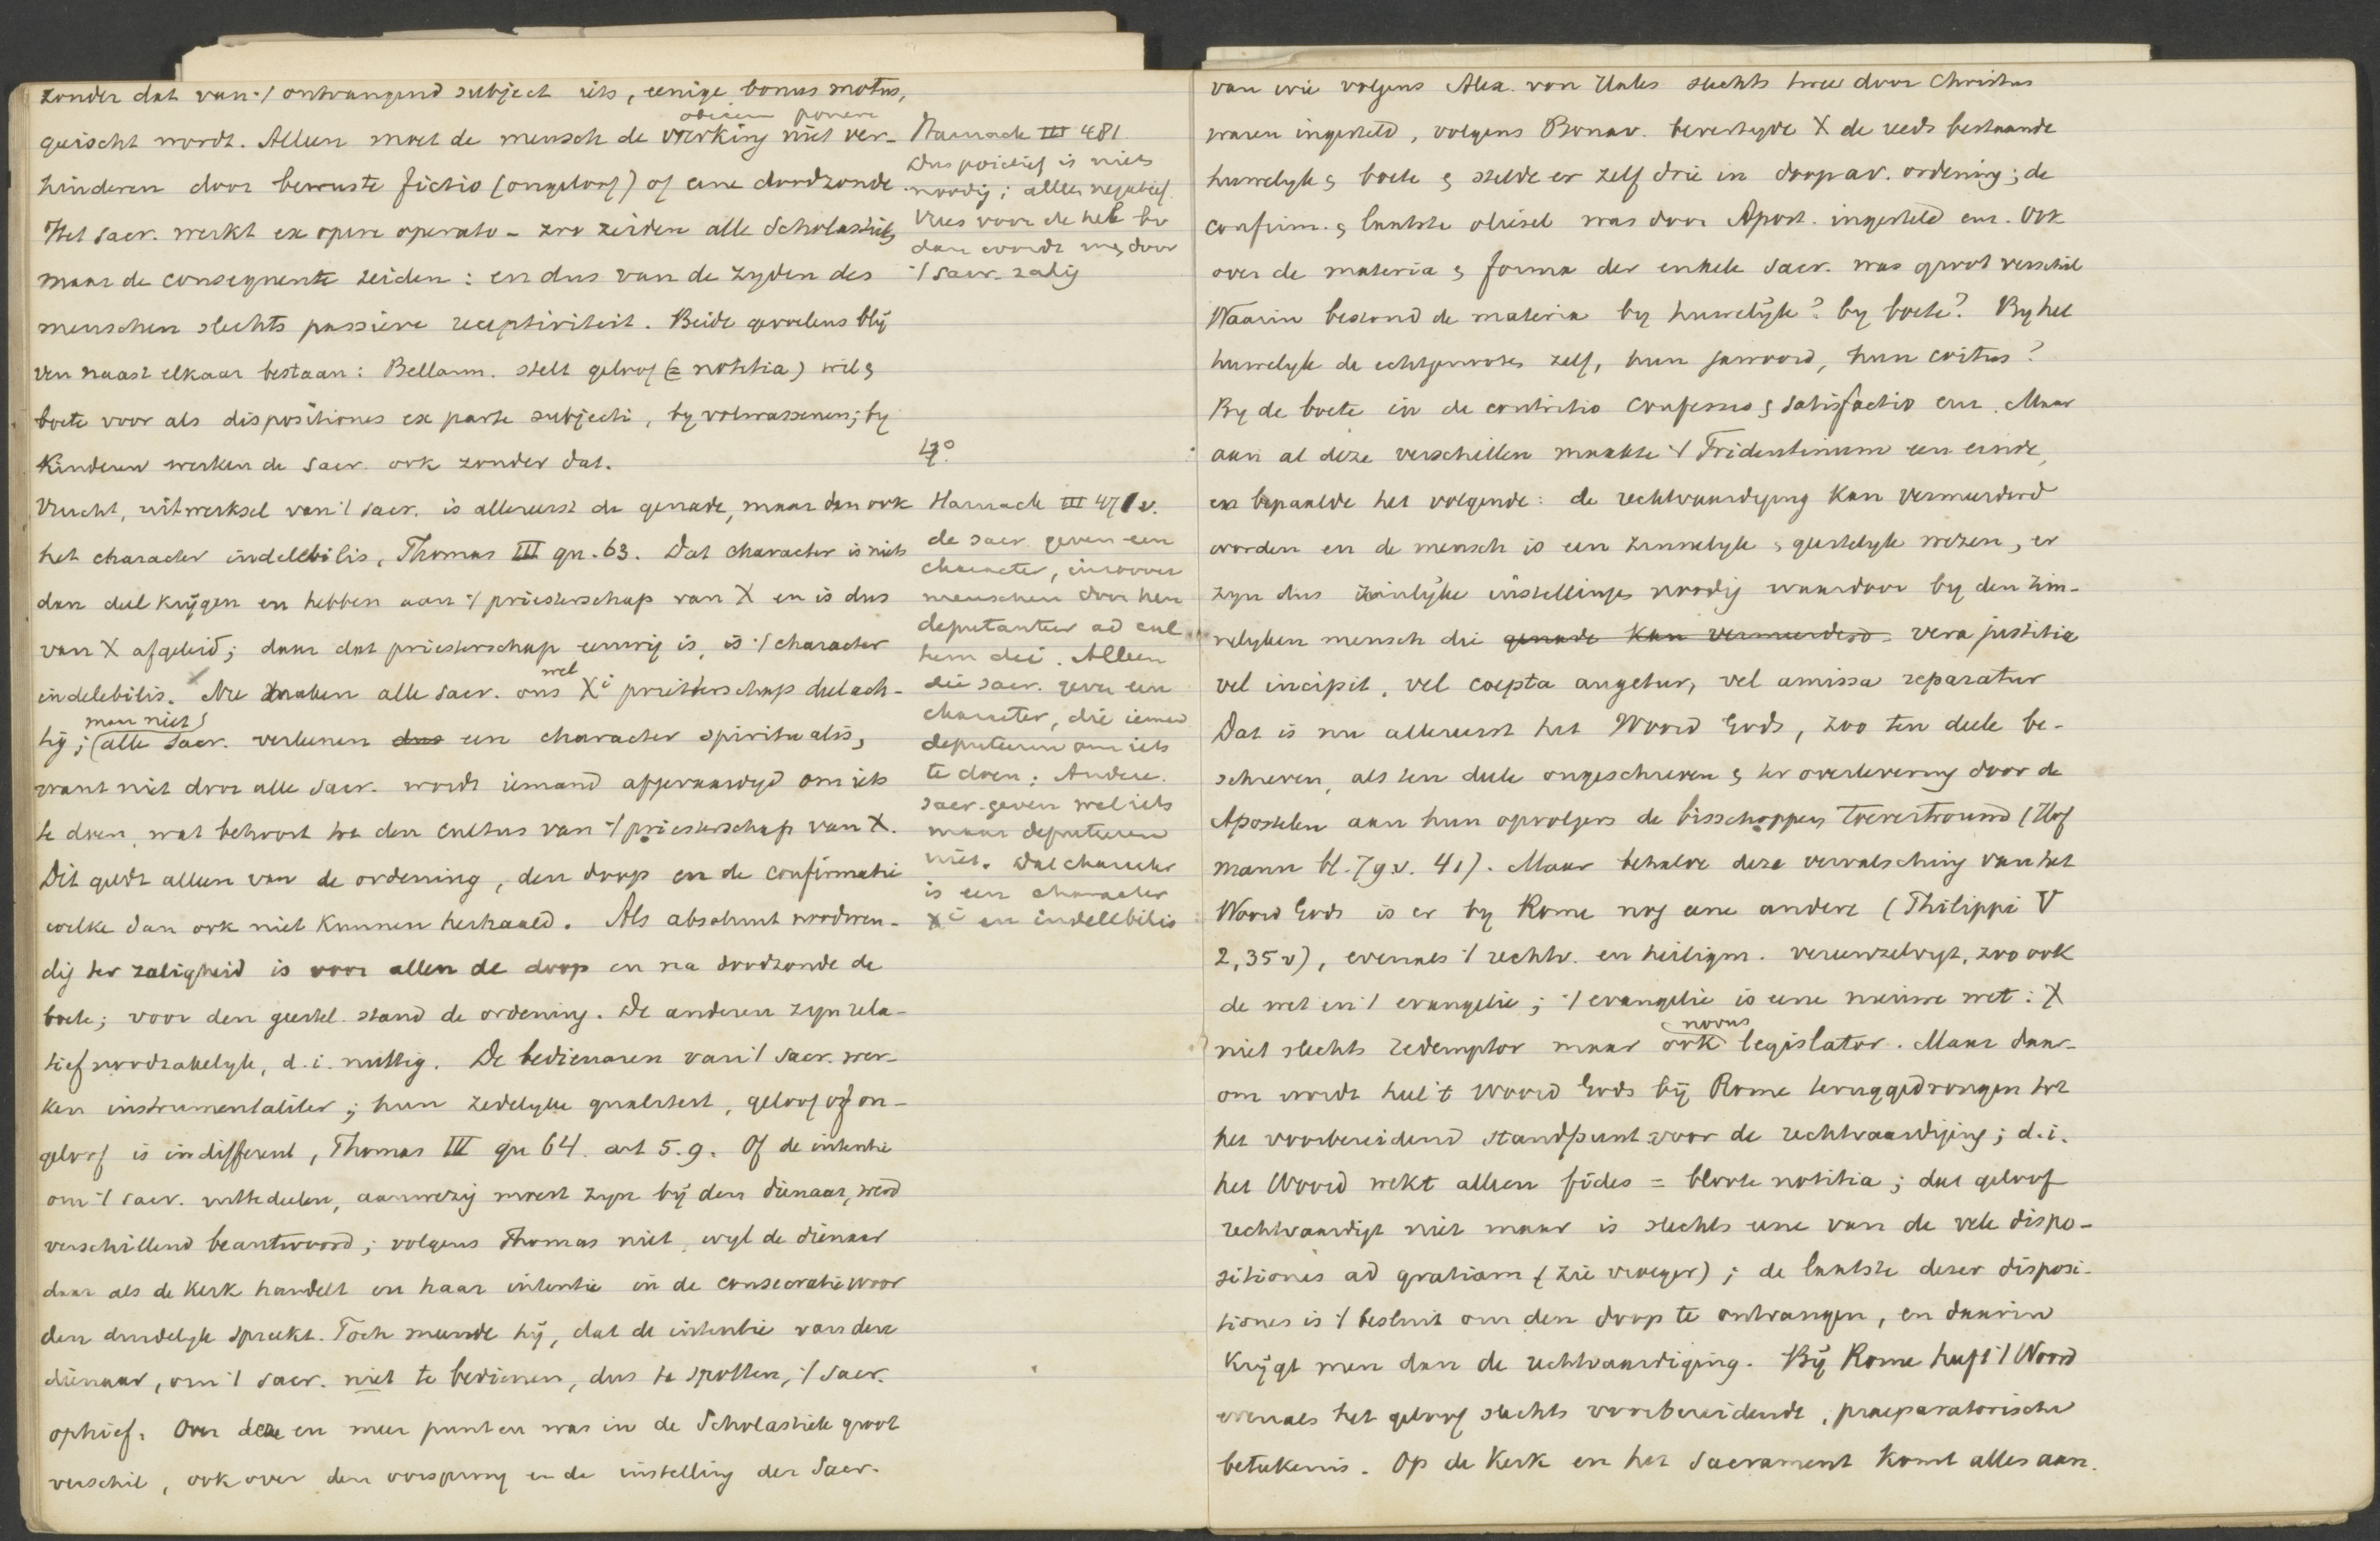 zonder dat van 't ontvangend subject iets, eenige bonus motus,
obicem ponere
geëischt wordt. Alleen moet de mensch de werking niet ver-
hinderen door bewuste fictio (ongeloof) of eene doodzonde.
Het sacr. werkt ex opere operato - zoo zeiden alle Scholastici,
maar de consequente zeiden: en dus van de zyden des
menschen slechts passieve receptiviteit. Beide gevoelens blij
ven naast elkaar bestaan: Bellarm. stelt geloof (= notitia) wil &
boete voor als dispositiones ex parte subjecti, by volwassenen; by
Kinderen werken de sacr. ook zonder dat.
Vrucht, uitwerksel van 't sacr. is allereerst de genade, maar dan ook
het character indelebilis, Thomas III qu. 63. Dat character is niets
dan deel krijgen en hebben aan 't priesterschap van X en is dus
van X afgeleid; daar dat priesterschap eeuwig is, is 't character
wel
indelebilis. Nu maken alle sacr. ons Xi priesterschap deelach-
maar niet
tig; alle sacr. verleenen dus een character spiritualis,
want niet door alle sacr. wordt iemand afgevaardigd om iets
te doen, wat behoort tot den cultus van 't priesterschap van X.
Dit geldt alleen van de ordening, den doop en de confirmatie
welke dan ook niet kunnen herhaald. Als absoluut noodwen-
dig ter zaligheid is voor allen de doop en na doodzonde de
boete; voor den geestel. stand de ordening. De anderen zyn rela-
tief noodzakelyk, d.i. nuttig. De bedienaren van 't sacr. wer-
ken instrumentaliter; hun zedelyke qualiteit, geloof of on-
geloof is indifferent, Thomas III qu 64. art 5.9. Of de intentie
om 't sacr. uit te deelen, aanwezig moest zyn bij den dienaar, werd
verschillend beantwoord; volgens Thomas niet, wyl de dienaar
daar als de Kerk handelt en haar intentie in de consecratiewoor
den duidelyk spreekt. Toch meende hij, dat de intentie van den
dienaar, om 't sacr. niet te bedienen, dus te spotten, 't sacr.
ophief. Over deze en meer punten was in de Scholastiek groot
verschil, ook over den oorsprong en de instelling der Sacr.
Harnack III 481.
Dus positief is niets
noodig; alleen negatief.
Vrees voor de hel bv
dan wordt men door
't sacr. zalig
4°.
Harnack III 471 v.
de sacr. geven een
character, in zoover
menschen door hen
deputantur ad cul
tum dei. Alleen
die sacr. geven een
character, die iemand
deputeeren om iets
te doen. Andere
sacr. geven wel iets
maar deputeeren
niet. Dat character
is een character
Xi en indelebilis
van wie volgens Alex. van Hales slechts twee door Christus
waren ingesteld, volgens Bonav. bevestigde X de reeds bestaande
huwelyk & boete & stelde er zelf drie in doop av. ordening; de
confirm. & laatste oliesel was door Apost. ingesteld enz. Ook
over de materia & forma der enkele sacr. was groot verschil
Waarin bestond de materia by huwelijk? by boete? By het
huwelyk de echtgenooten zelf, hun jawoord, hun coitus?
By de boete in de contritio confessio & satisfactio enz. Maar
aan al deze verschillen maakte 't Tridentinum een einde,
en bepaalde het volgende: de rechtvaardiging kan vermeerderd
worden en de mensch is een zinnelyk & geestelyk wezen, er
zyn dus zinlijke instellingen noodig waardoor by den zin-
nelyken mensch die genade kan vermeerderd vera justitia
vel incipit, vel coepta augetur, vel amissa reparatur
Dat is nu allereerst het Woord Gods, zoo ten deele be-
schreven, als ten deele ongeschreven & ter overlevering door de
Apostelen aan hun opvolgers de bisschoppen toevertrouwd (Hof
mann bl. 7 g.v. 41). Maar behalve deze vervalsching van het
Woord Gods is er by Rome nog eene andere (Philippi V
2, 35 v), evenals 't rechtv. en heiligm. vereenzelvigt, zoo ook
de wet en 't evangelie; 't evangelie is eene nieuwe wet: X
novus
niet slechts redemptor maar ook legislator. Maar daar-
om wordt heel 't Woord Gods bij Rome teruggedrongen tot
het voorbereidend standpunt voor de rechtvaardiging; d.i.
het Woord wekt alleen fides = bloote notitia; dat geloof
rechtvaardigt niet maar is slechts eene van de vele dispo-
sitiones ad gratiam (zie vroeger); de laatste dezer disposi-
tiones is 't besluit om den doop te ontvangen, en daarin
Krijgt men dan de rechtvaardiging. Bij Rome heeft 't Woord
evenals het geloof slechts voorbereidende, praeparatorische
beteekenis. Op de Kerk en het Sacrament komt alles aan.